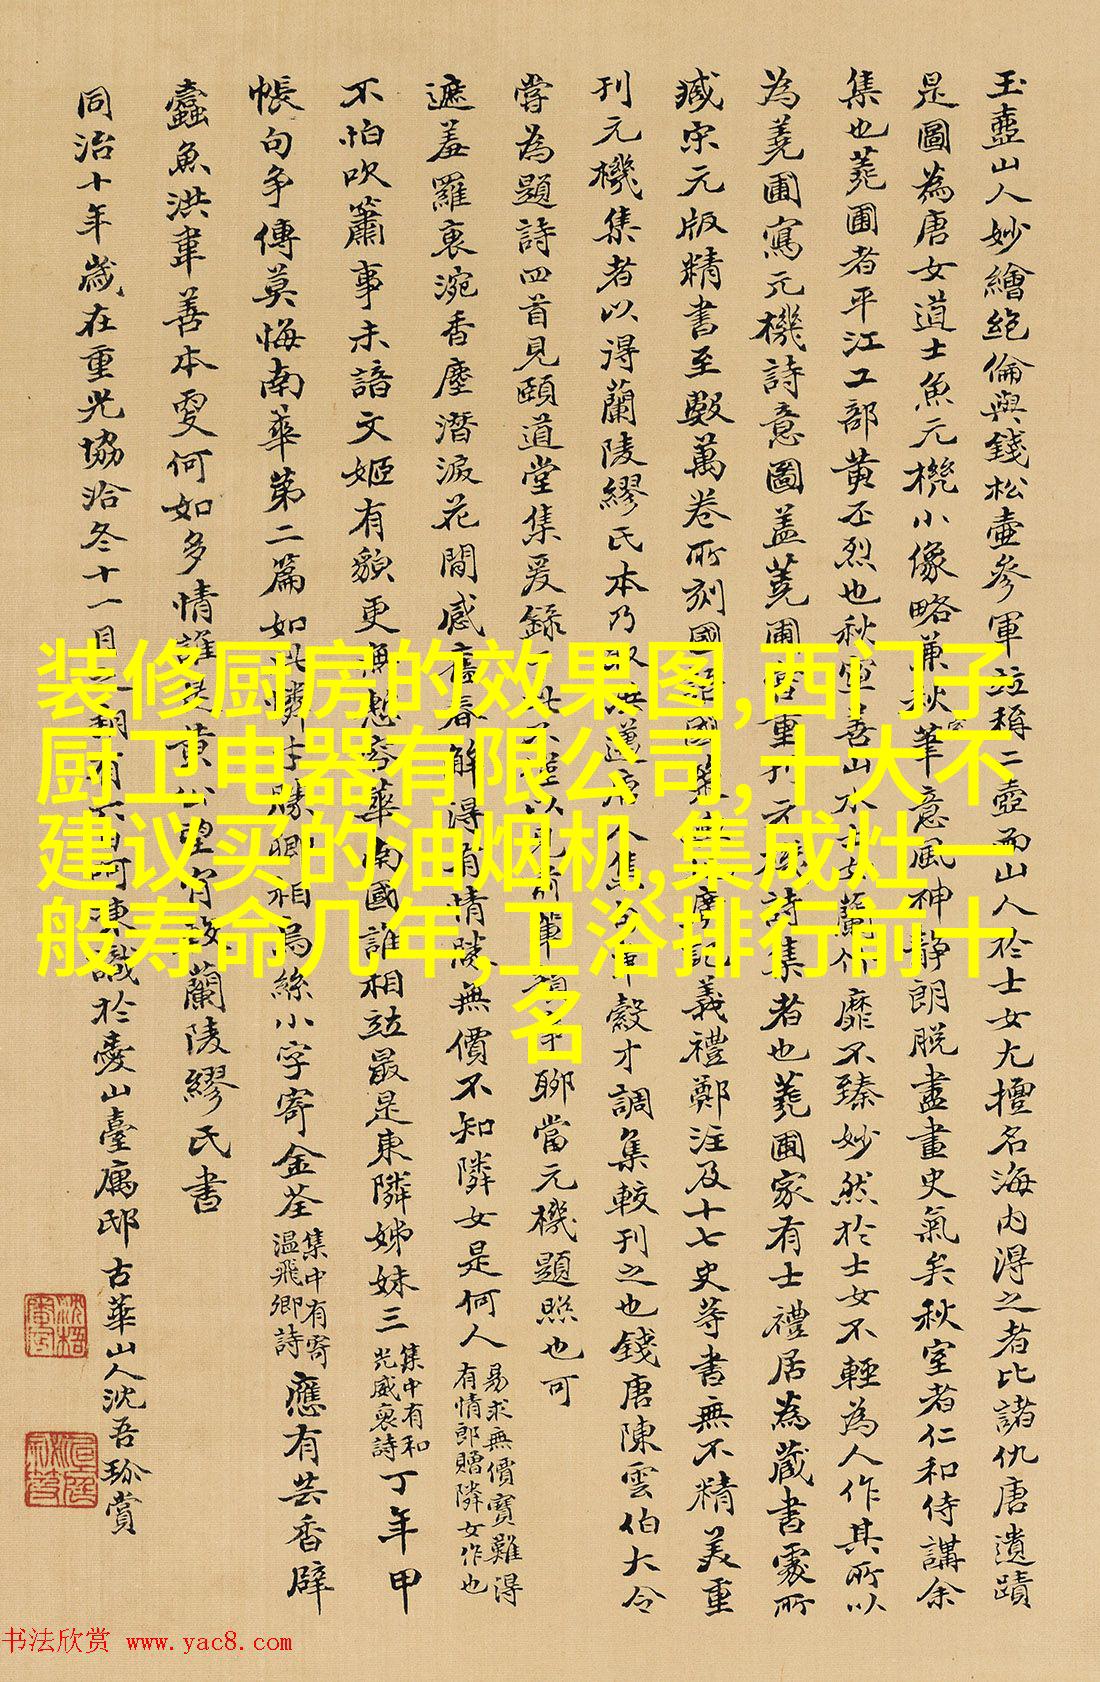 玉壺山人妙繪絕倫與錢松壺參軍竝稱二壺而山人於士女尤擅名海內得之者比諸仇唐遺蹟
是圖為唐女道士魚元機小像略兼秋室筆意風神靜朗脫盡畫史氣矣秋室者仁和侍講余
集也蕘圃者平江工部黃丕烈也秋室善山水士女蘭竹靡不臻妙然於士女不輕為人作其所以
為蕘圃寫元機詩意圖蓋蕘圃曾重刊元機詩集者也蕘圃家有士禮居為藏書處所
臧宋元版精書至數萬卷所刻國語國策儀禮鄭注及十七史等書無不精美重
刊元機集者以得蘭陵繆氏本乃令穀才調集較刊之也錢唐陳雲伯大令
嘗為題詩四首見頤道堂集爰錄以見前輩聊當元機題照也可
遮羞羅裹涴香塵潛淚花間感舊春解得有情勝無價不知隣女是何人
易求無價寶難得
有情郎贈隣女作也
不怕吹簫事未諳文姬有貌更無慙容華南國誰相竝最是東隣姊妹三
集中有和
光威裒詩
丁年甲
帳句爭傳莫悔南華第二篇如此勝卿相烏絲小字寄金荃
集中有寄
溫飛卿詩
應有芸香辟
蠹魚洪韋善本更何如多情誰是黃蘭陵繆氏書
同治十年歲在重光協洽冬十一月識於臺廎邸古華山人沈吾珎賞
装修厨房的效果图,西门子
厨卫电器有限公司,十大不
建议买的油烟机,集成灶一
般寿命几年,卫浴排行前十
名
书法欣赏 www.yac8.com